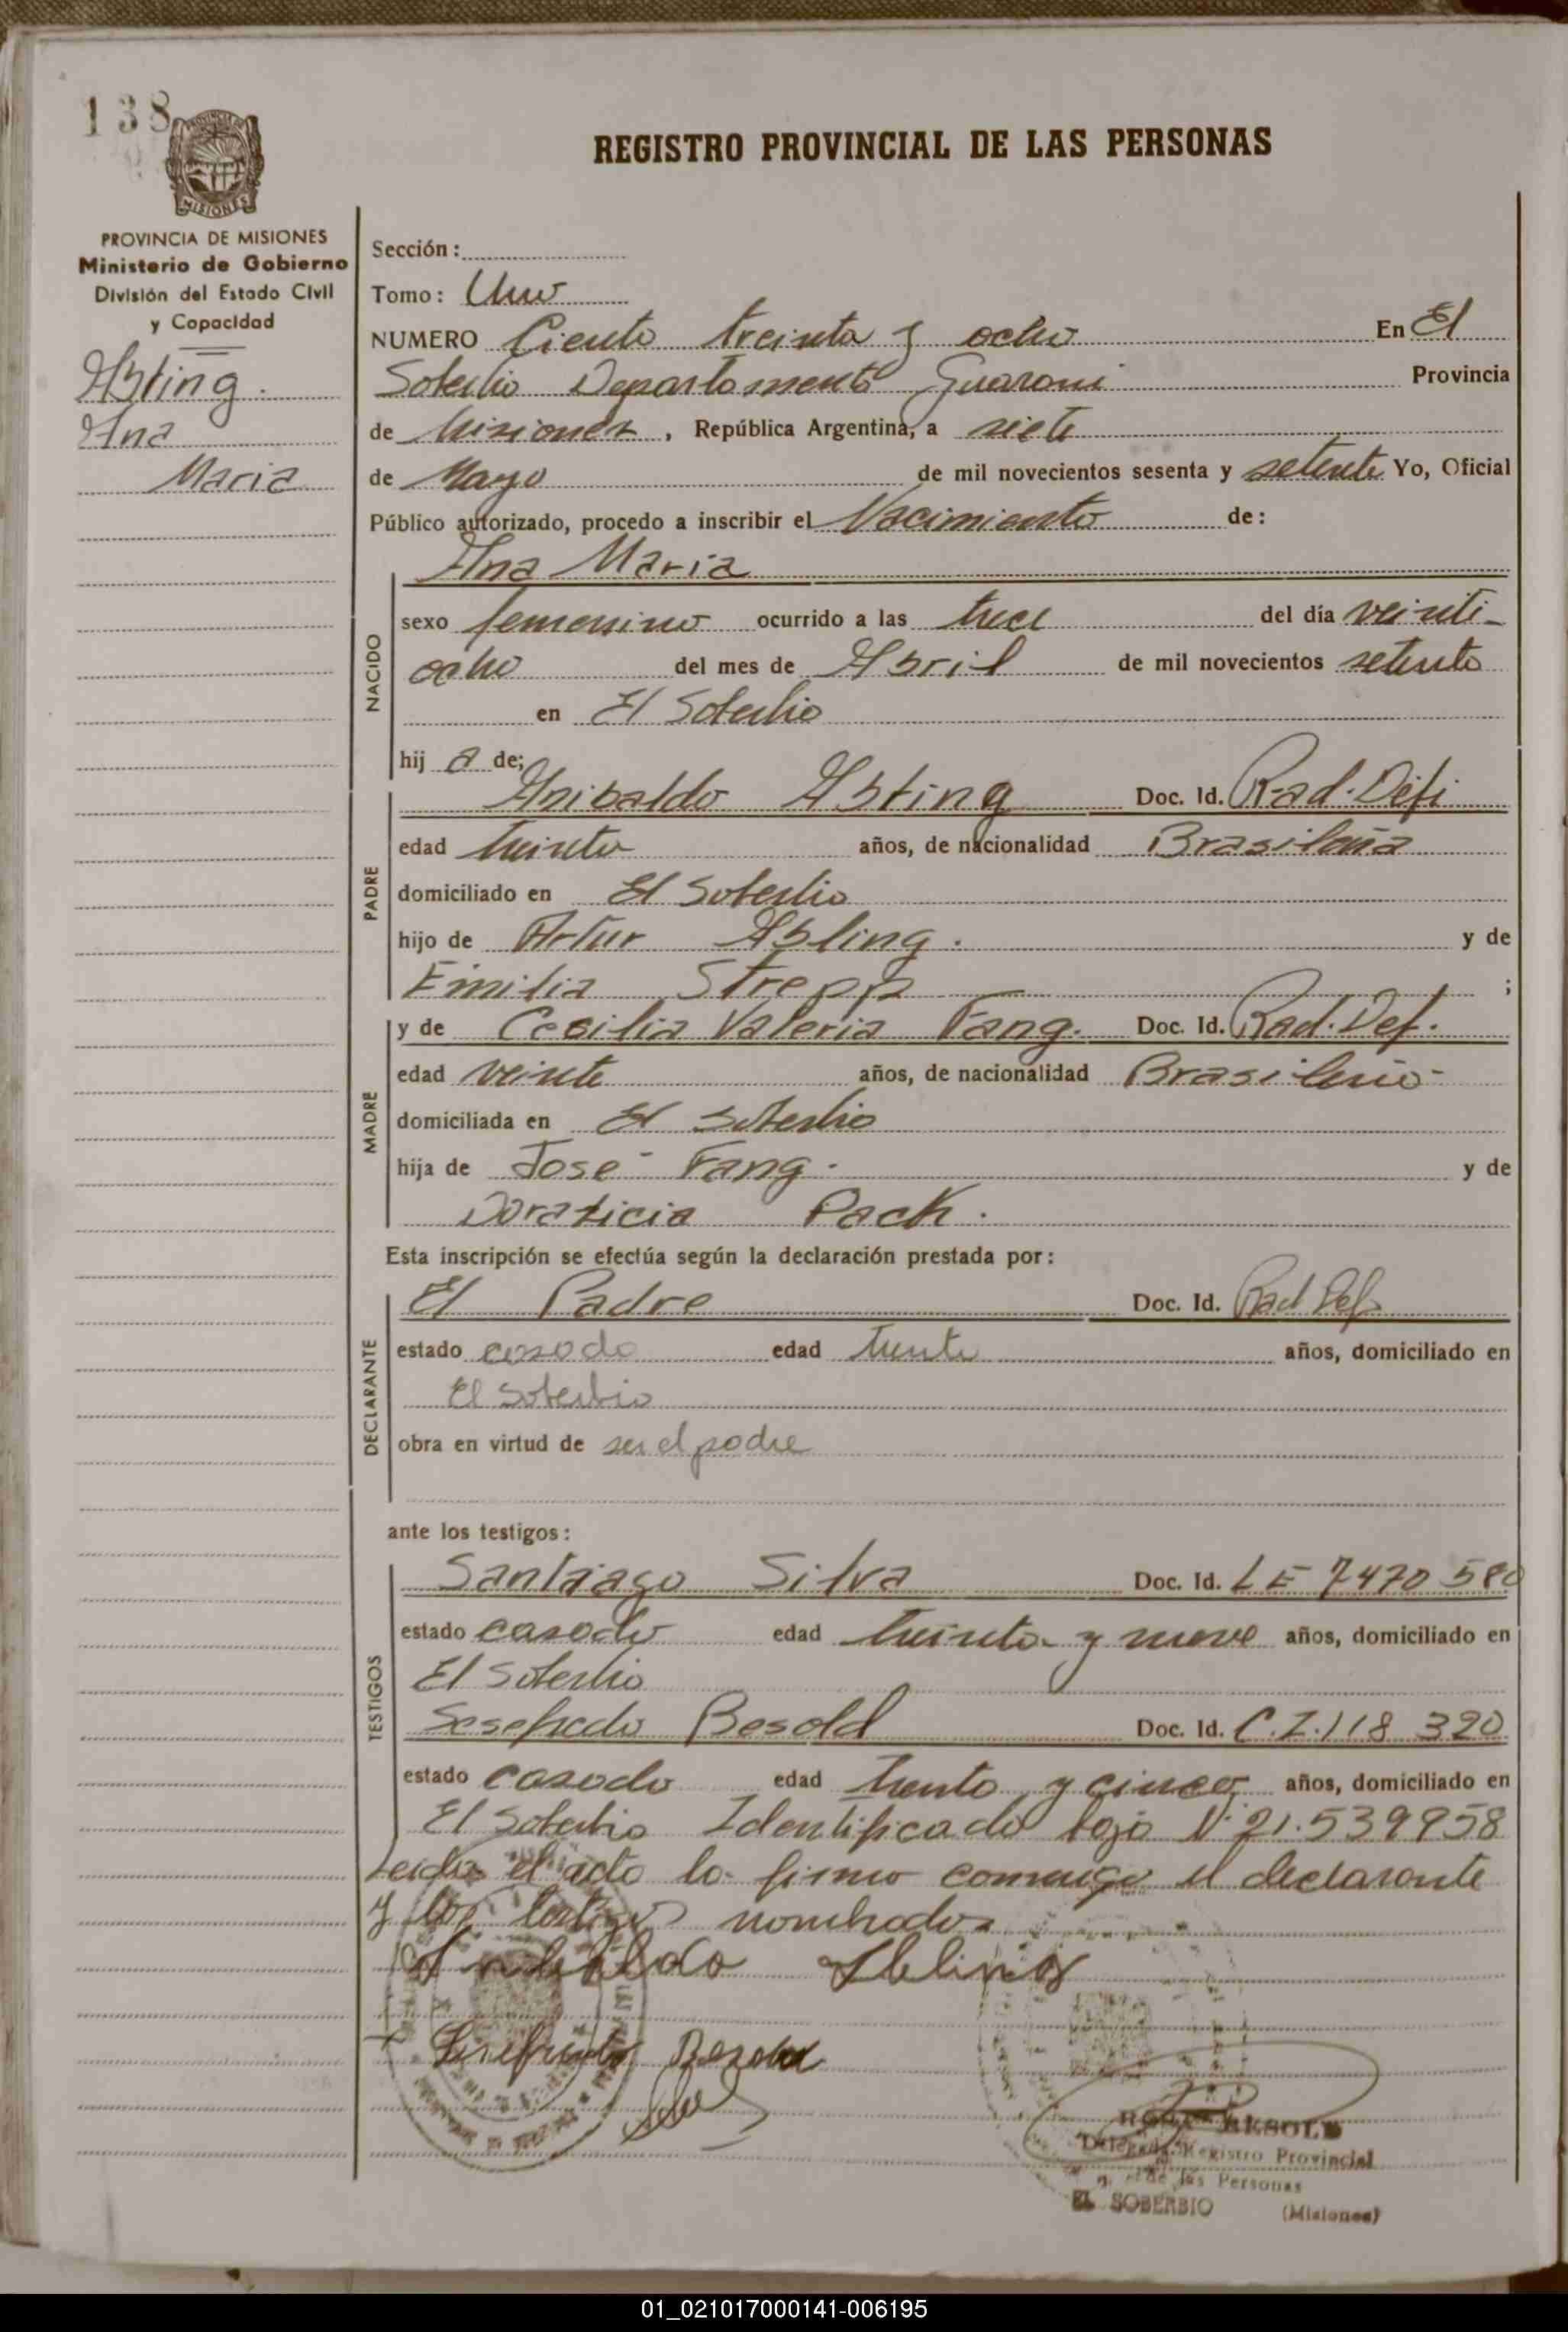 138
REGISTRO PROVINCIAL DE LAS PERSONAS
MISIONES
PROVINCIA DE MISIONES
Ministerio de Gobierno
División del Estado Civil
y Capacidad
Abling.
Ana
Maria
Sección:
Tomo: Uno
NUMERO Ciento treinta y ocho En El
Soberbio Departamento Guarani Provincia
de Misiones, República Argentina, a siete
de Mayo de mil novecientos sesenta y setenta Yo, Oficial
Público autorizado, procedo a inscribir el Nacimiento de:
Ana Maria
NACIDO
sexo femenino ocurrido a las trece del día veinti-
ocho del mes de Abril de mil novecientos setenta
en El Soberbio
hij a de;
PADRE
Anibaldo Abling Doc. Id. Rad. Defi
edad treinta años, de nacionalidad Brasileña
domiciliado en El Soberbio
hijo de Artur Abling. y de
Emilia Strepp ;
MADRE
y de Cecilia Valeria Fang. Doc. Id. Rad. Def.
edad veinte años, de nacionalidad Brasileña
domiciliada en El Soberbio
hija de José Fang. y de
Pack.
Esta inscripción se efectúa según la declaración prestada por:
DECLARANTE
El Padre Doc. Id. Rad Def
estado casado edad treinta años, domiciliado en
El Soberbio
obra en virtud de ser el padre
ante los testigos:
TESTIGOS
Santiago Silva Doc. Id. LE 7470580
estado casado edad treinta y nueve años, domiciliado en
El Soberbio
Besold Doc. Id. C.I. 118 320
estado casado edad treinta y cinco años, domiciliado en
El Soberbio Identificado bajo N° 21.539958
Leida el acto lo firmo conmigo el declarante
y los testigos nombrados
Anibaldo Abling
Besold
BESOLD
Registro Provincial
de las Personas
EL SOBERBIO (Misiones)
01_021017000141-006195